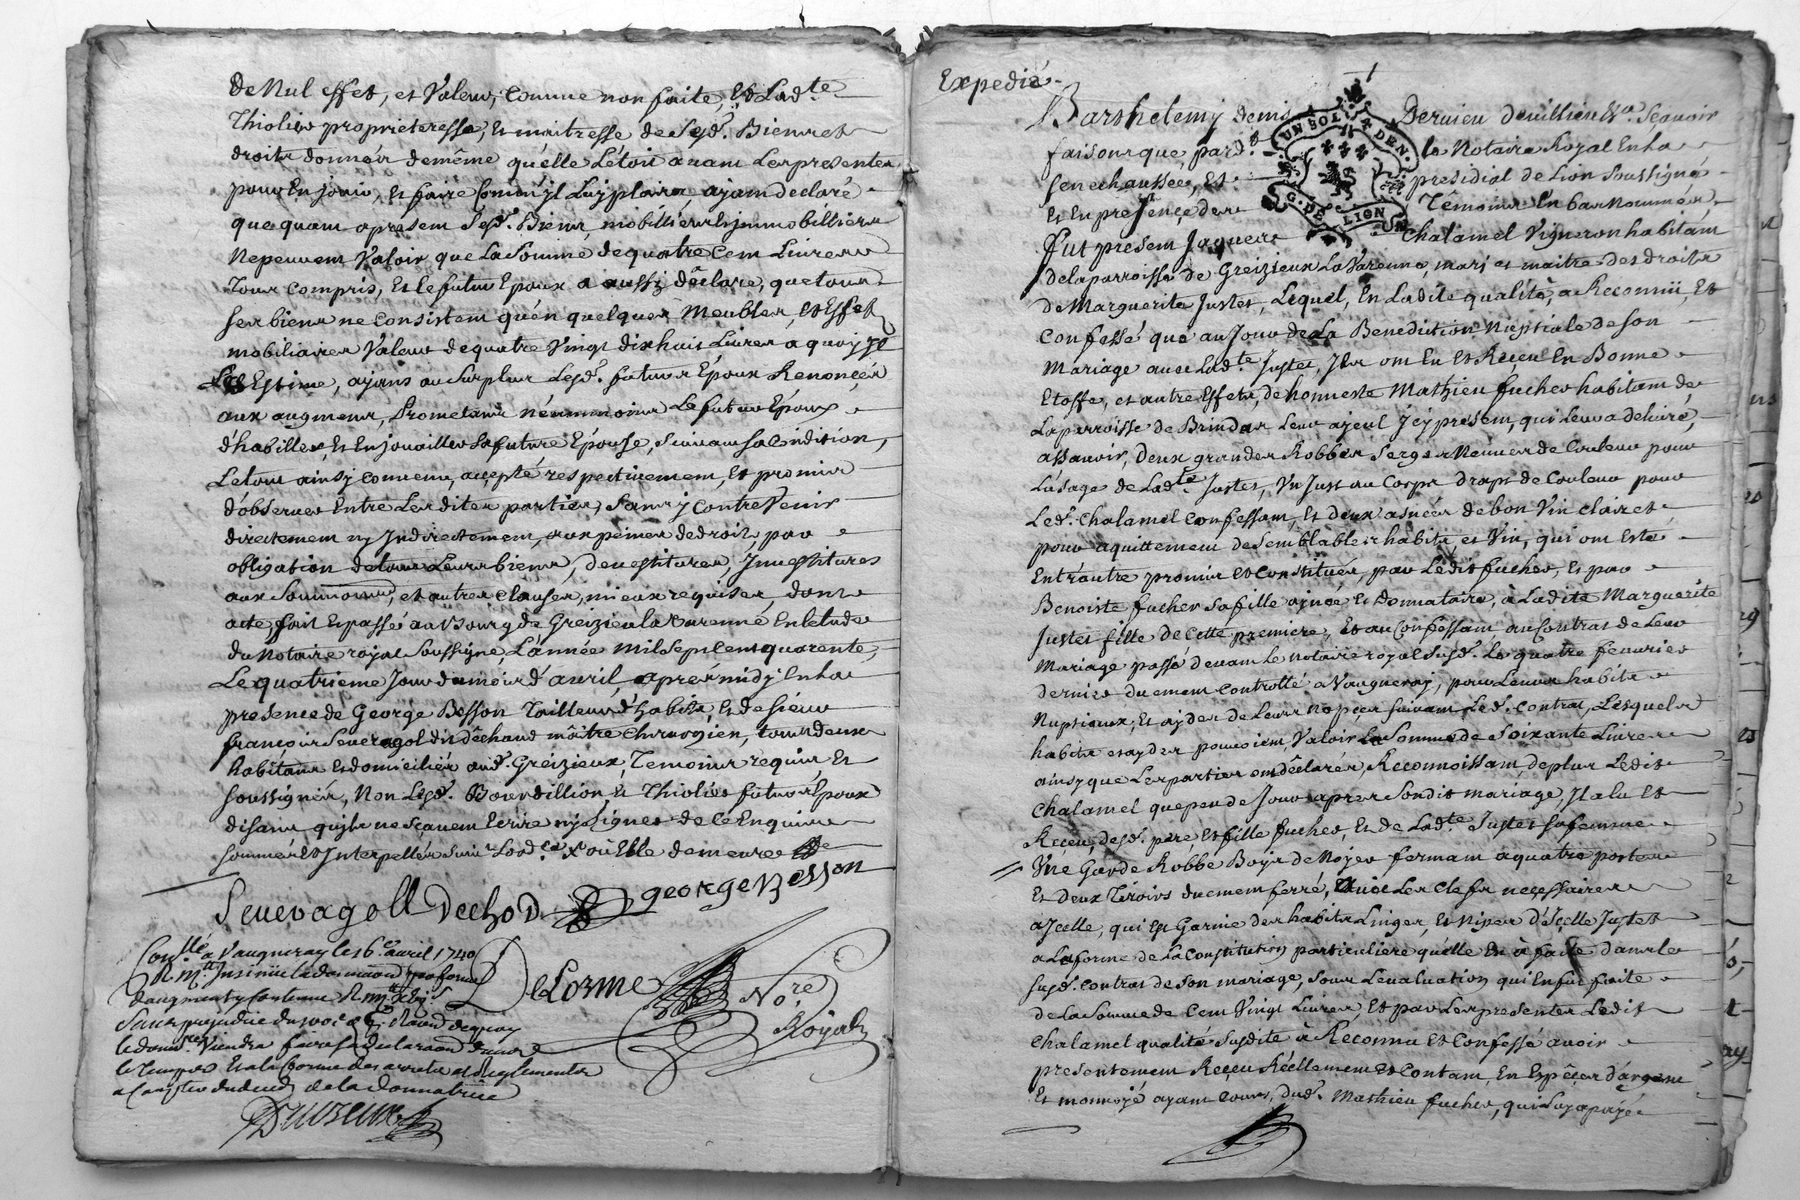 De Nul effet, et Valeur, comme non faite, Et Lad.te
Thiolier proprieteresse, Et maitresse de Sesd. Biens et
droits donnés de même quelle L'étoit avant Les presentes
pour En jouir, Et faire Comm'il Luy plaira, ayant declaré
que quant apresent Sesd. Biens, mobilliers Et immobilliers
Nepeuvent Valoir que La Somme de quatre Cent Livres
Tout compris, Et le futur Epoux a aussi déclaré, que tous
Ses biens ne consistent qu'en quelques Meubles, Et Effets
mobiliaires Valeur de quatre Vingt dix huit Livres a quoy Il
Les Estime, ayans au Surplus Lesd. futurs Epoux Renoncés
aux augment, Prometant néanmoins Le futur Epoux
d'habiller, Et En jouailler Sa future Epouse, Suivant Sa Condition,
Le tout ainsy convenu, accepté respectivement, Et promis
d'observer Entre Les dites parties, Sans y Contrevenir
directement ny Indirectement, aux peines de droit, par
obligation de tous Leurs biens, devestitures, Investitures
aux Soumissions, et autres clauses, mieux requises, dont
acte fait Et passé au Bourg de Greizieu la Varenne En letude
du Notaire royal Soussigné, L'année mil Sept Cent quarente,
Le quatrieme Jour du mois d'avril, après midy En la
presence de George Besson Tailleur d'habits, Et de Sieur
françois Seuvragol dit dêchaud maître Chirurgien, tous deux
habitans Et domiciliés aud. Greizieux, Temoins requis Et
Soussignés, Non Lesd. Bourdillion, Et Thiolier futurs Epoux
disant qu'ils ne Sçavent Ecrire ny Signer de Ce Enquis
Sommés Et Interpellés Suiv.t Lord.ce X où Elle demeure
Seuevagoll Dechod george Besson
Con.llé a Vaugneray les 6.e avril 1740
DeLorme No.re
Royal
Sans prejudice du
le temps Et a la forme des arrets et Reglements
de la Donnatrice
Expedié
Barthelemy denis Dervieu Sçavoir
faisons que, pard.t le Notaire Royal En la
Senechaussée, Et presidial de Lion Soussigné
UN SOL 4 DEN.
G. DE LION
Et En presence des Temoins En bas Nommés,
fut present Jaques Chalamel Vigneron habitant
de la parroisse de Greizieux La Varenne, mary et maitre des droits
de Marguerite Justet, Lequel, En Ladite qualité, a Reconnü, Et
Confessé que au Jour de La Benediction Nuptiale de Son
Mariage avec Lad.te Justet, Ils ont Eu Et Reçeu En Bonne
Etoffe, et autre Effets, de honneste Mathieu fucher habitant de
La parroisse de Brindas Leur ayeul Icy present, qui Leur a delivré,
assavoir, Deux grandes Robbes Serges Neuves de Couleur pour
L'usage de Lad.te Justet, Un Just au Corps drap de Couleur pour
Led. Chalamel Confessant, Et deux asnées de bon Vin clairet
pour aquittement de Semblables habits et Vin, qui ont Esté
Entr'autre promis Et Constitués, par Ledit fucher, Et par
Benoiste fucher Sa fille ainée Et Donnataire, a Ladite Marguerite
Justet fille de Cette premiere, Et au Confessant, au Contrat de Leur
Mariage passé devant Le notaire royal Susd. Le quatre fevrier
dernier duement Controllé a Vaugneray, pour Leurs habits
Nuptiaux, Et ayder de Leurs nopces Suivant Led. Contrat, Lesquels
habits et ayder pouvoient Valoir La Somme de Soixante Livres
ainsy que Les parties ont déclarés, Reconnoissant, de plus Ledit
Chalamel que peu de Jours apres Sondit mariage, Il a Eu Et
Reçeu, desd. pere, Et fille fucher, Et de Lad.te Justet Sa femme
Une Garde Robbe Bois de Noyer fermant a quatre portes
Et deux Tiroirs duement ferré, avec Les Clefs necessaires
a Icelle, qui Est Garnie des habits Linges, Et Nipes d'Icelle Justet
a La forme de La Constitution particuliere qu'elle En a faite dans le
Susd. Contrat de Son mariage, Sous L'evaluation qui En fut faite
de La Somme de Cent Vingt Livres, Et par Les presentes Ledit
Chalamel qualité Susdite a Reconnu Et Confessé avoir
presentement Reçeu Réellement Et Contant, En Espêces d'argent
Et monnoyé ayant Cours, dud. Mathieu fucher, qui Luy a payé